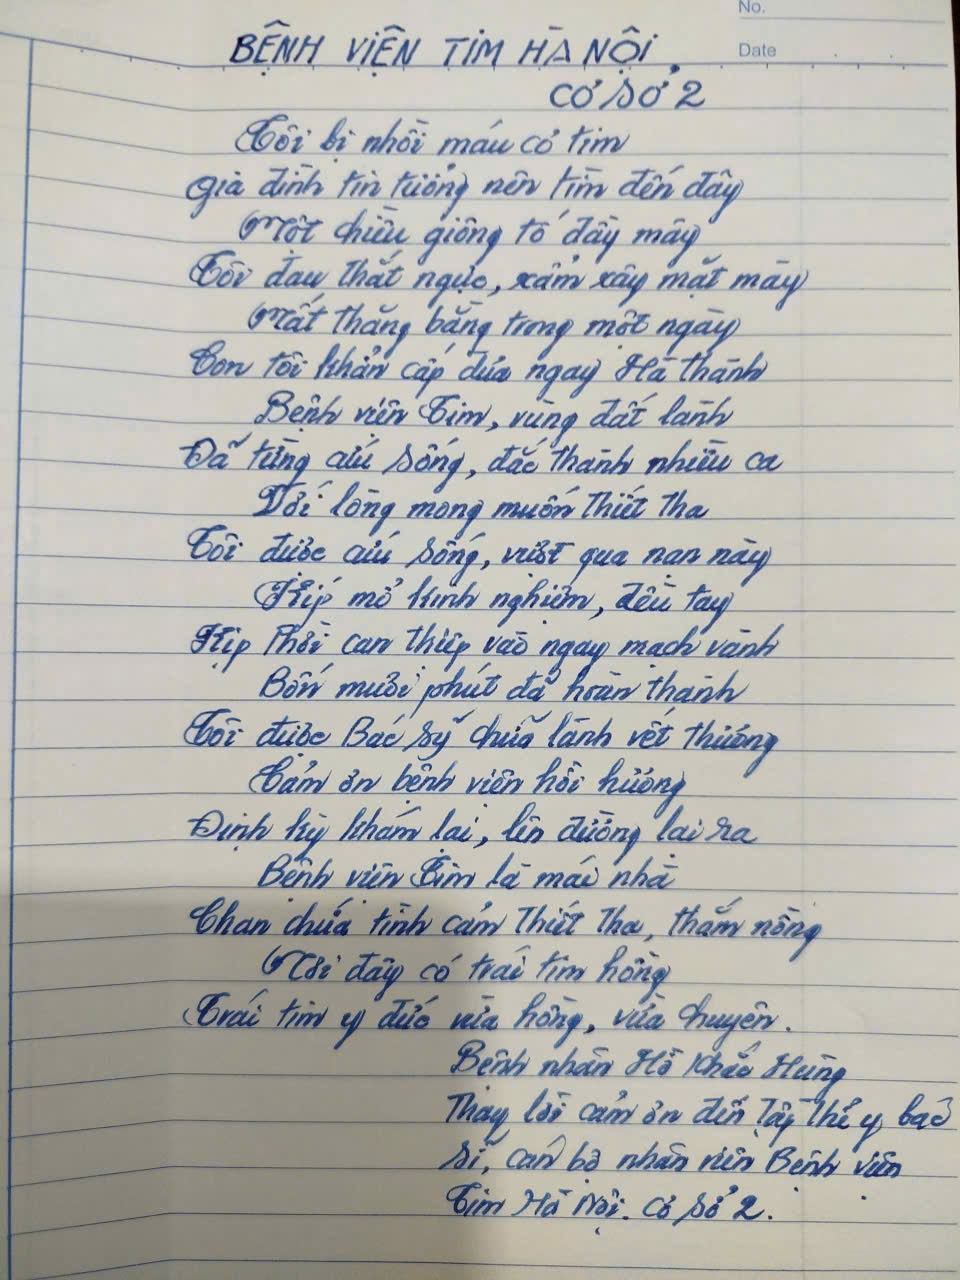 No.
Date
BỆNH VIỆN TIM HÀ NỘI
CƠ SỞ 2
Tôi bị nhồi máu cơ tim
Gia đình tin tưởng nên tìm đến đây
Một chiều giông tố đầy mây
Tôi đau thắt ngực, xẩm xây mặt mày
Mất thăng bằng trong một ngày
Con tôi khẩn cấp đưa ngay Hà thành
Bệnh viện Tim, vùng đất lành
Đã từng cứu sống, đắc thành nhiều ca
Với lòng mong muốn thiết tha
Tôi được cứu sống, vượt qua nạn này
Kíp mổ kinh nghiệm, đều tay
Kịp thời can thiệp vào ngay mạch vành
Bốn mươi phút đã hoàn thành
Tôi được Bác sỹ chữa lành vết thương
Cảm ơn bệnh viện hồi hương
Định kỳ khám lại, lên đường lại ra
Bệnh viện Tim là mái nhà
Chan chứa tình cảm thiết tha, thắm nồng
Nơi đây có trái tim hồng
Trái tim y đức vừa hồng, vừa chuyên.
Bệnh nhân Hồ Khắc Hùng
Thay lời cảm ơn đến tập thể y bác
sĩ, cán bộ nhân viên Bệnh viện
Tim Hà Nội. Cơ sở 2.